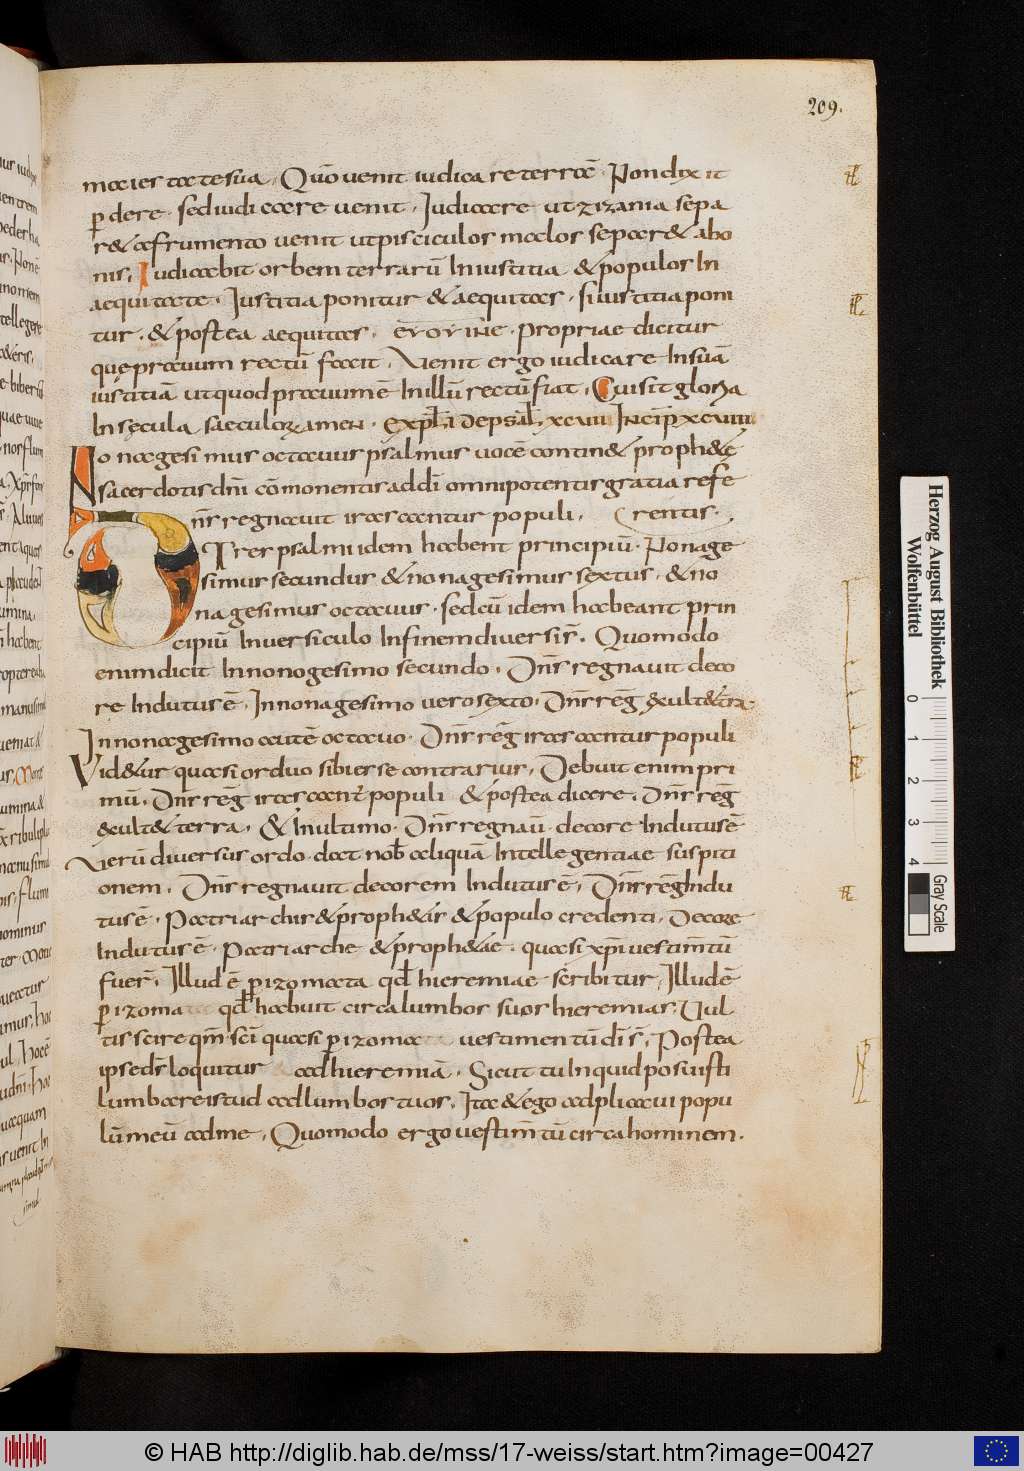 209.
maiestate sua. Quō venit iudicare terrā. Non dixit
ꝑdere. sed iudicare venit. Iudicare ut zizania sepa
r& a frumento venit ut pisciculos malos separ& abo
nis, Iudicabit orbem terrarū In iustitia & populos In
aequitate. Iustitia ponitur & aequitas. si iustitia poni
tur. & postea aequitas. propriae dicitur
quę pravum rectū facit. Venit ergo iudicare In suā
iustitiā ut quod pravum ē In illū rectū fiat. Cui sit gloria
In sęcula saeculorū amen. Expl̄ de psal̄. xcvii Incip̄ xcviii
Nonagesimus octavus psalmus vocē contin& proph&ę
sacerdotis dn̄i cōmonentis ad dī omnipotentis gratia refe
Dn̄s regnavit irascantur populi. rentis.
Tres psalmi idem habent principiū. Nonage
simus secundus & nonagesimus sextus. & no
nagesimus octavus. sed cū idem habeant prin
cipiū In versiculo In fine in diversis s̄. Quomodo
enim dicit In nonogesimo secundo. Dn̄s regnavit deco
re Indutus ē. In nonagesimo vero sexto. Dn̄s reḡ &xult& t̄ra.
In nonagesimo autē octavo. Dn̄s reḡ irascantur populi
Vid&ur quasi ordo sibi esse contrarius. Debuit enim pri
mū. Dn̄s reḡ irascant̄ populi & postea dicere. Dn̄s reḡ
&xult& terra. & In ultimo. Dn̄s regnaū decore Indutus ē
Verū diversus ordo dat nob̄ aliquā Intellegentiae suspiti
onem. Dn̄s regnavit decorem Indutus ē. Dn̄s reḡ Indu
tus ē. Patriarchis & proph&is & populo credenti. Decore
Indutus ē. Patriarche & proph&ae. quasi xp̄i vestim̄tū
fuer̄. Illud ē ꝑizomata qd̄ hieremiae scribitur. Illud ē
ꝑizoma qd̄ habuit circa lumbos suos hieremias. Vul
tis scire qm̄ sc̄i quasi ꝑizoma vestimentū dī s̄. Postea
ipse dr̄ loquitur ad hieremiā. Sicut tu Inquid posuisti
lumbare istud ad lumbos tuos. Ita & ego adplicavi popu
lū meū ad me. Quomodo ergo vestim̄tū circa hominem.
Herzog August Bibliothek
Wolfenbüttel
0 1 2 3 4
Gray Scale
© HAB http://diglib.hab.de/mss/17-weiss/start.htm?image=00427